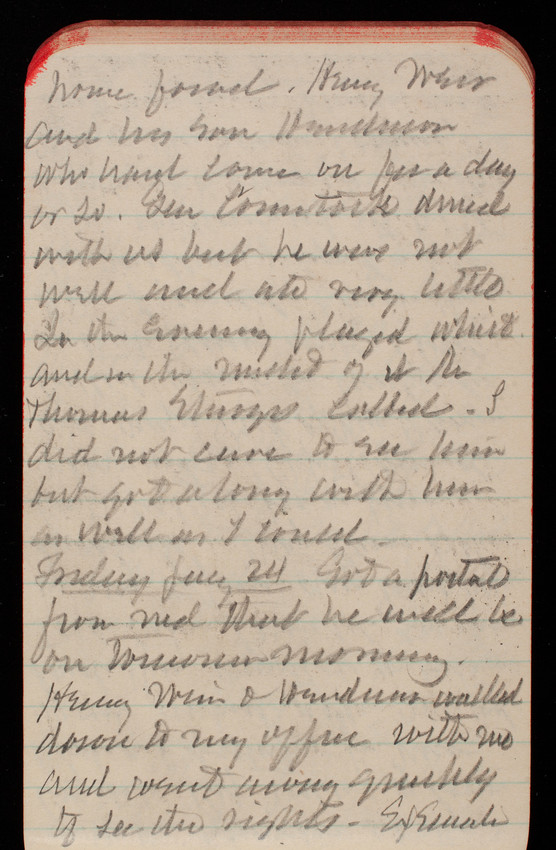 home found. Henry Weir
and his son Henderson
who had come on for a day
or so. Gen Comstock dined
with us but he was not
well and ate very little
In the Evening played whist
and in the midst of it Mr
Thomas Sturgis called - I
did not care to see him
but got along with him
as well as I could -
Friday Jany 24 Got a postal
from Ned that he will be
on tomorrow morning.
Henry Weir & Henderson walked
down to my office with me
and went away quickly
to see the sights -